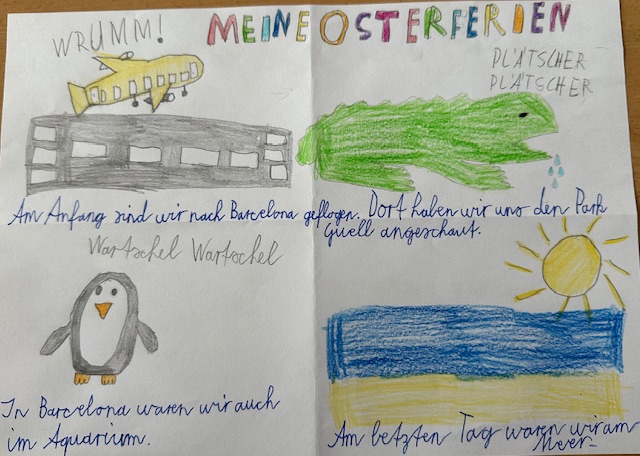 MEINE OSTERFERIEN
WRUMM!
PLÄTSCHER
PLÄTSCHER
Am Anfang sind wir nach Barcelona geflogen. Dort haben wir uns den Park
Guell angeschaut.
Wartschel Wartschel
In Barcelona waren wir auch
im Aquarium.
Am letzten Tag waren wir am
Meer.